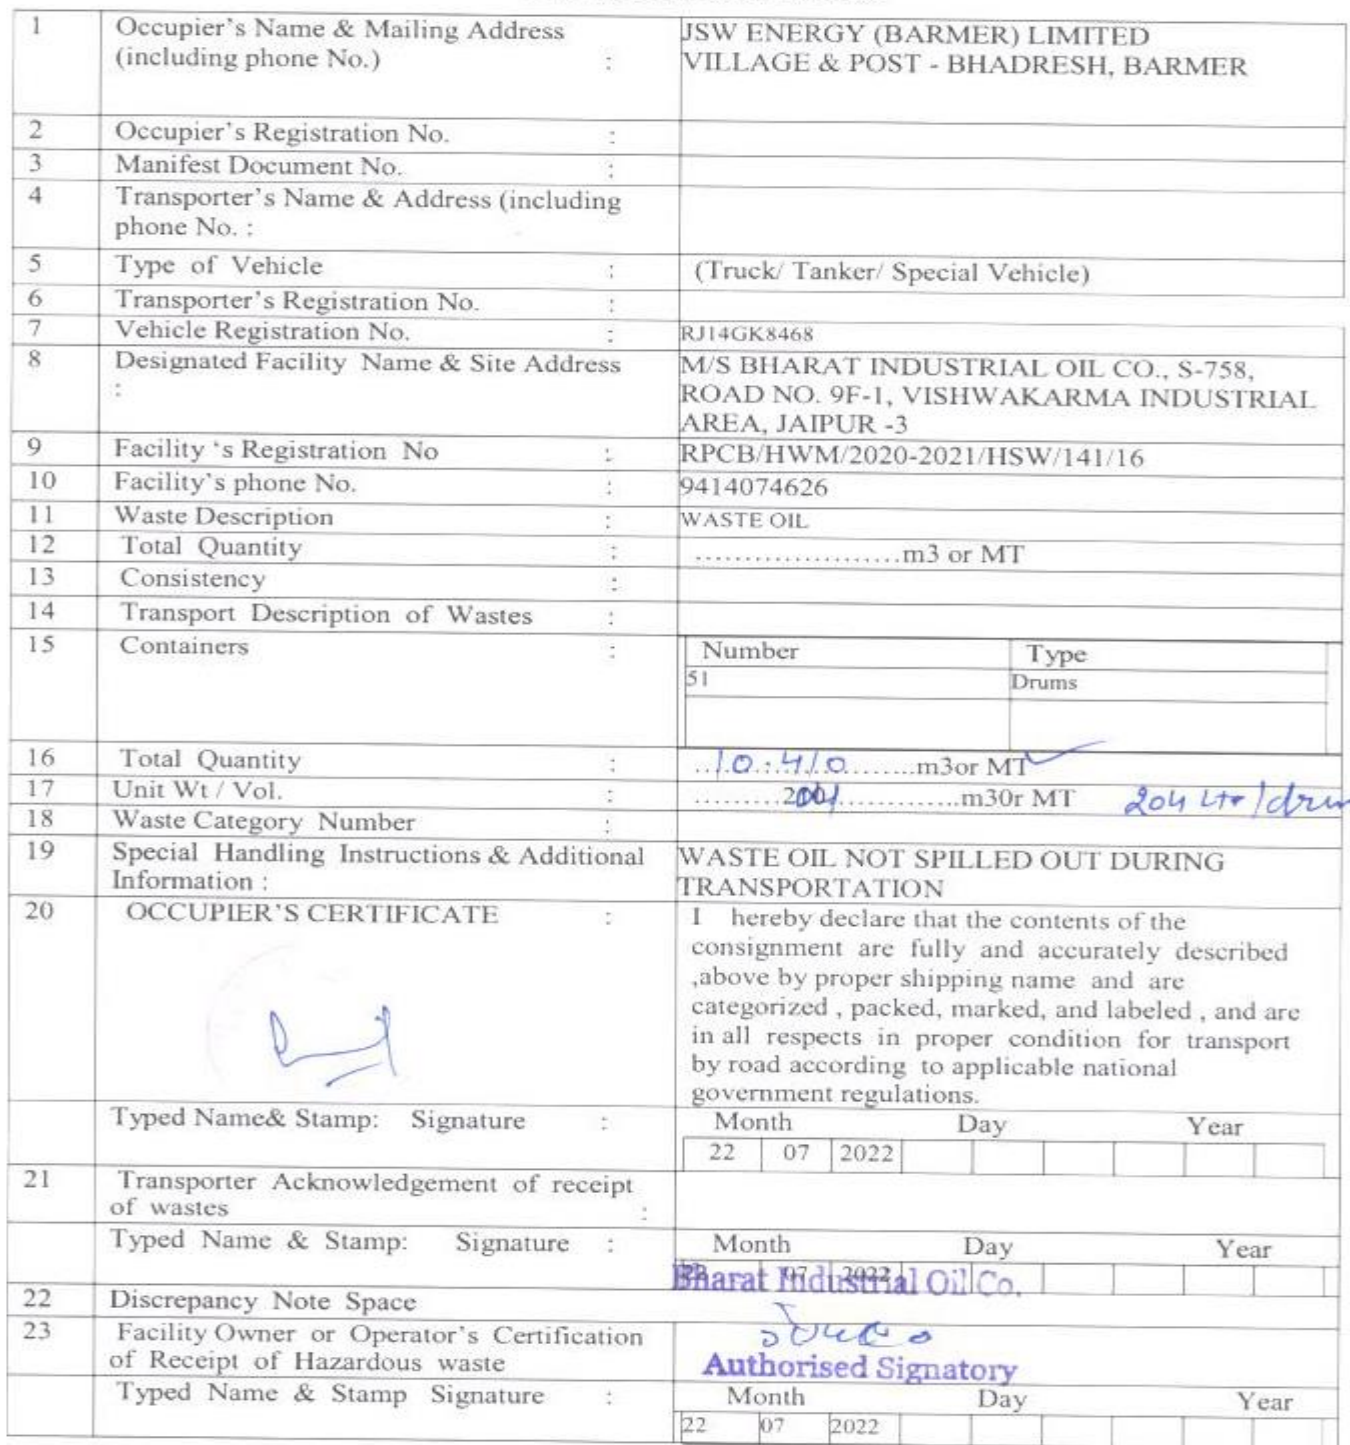 1 Occupier's Name & Mailing Address (including phone No.) : JSW ENERGY (BARMER) LIMITED
VILLAGE & POST - BHADRESH, BARMER
2 Occupier's Registration No. :
3 Manifest Document No. :
4 Transporter's Name & Address (including phone No. :
5 Type of Vehicle : (Truck/ Tanker/ Special Vehicle)
6 Transporter's Registration No. :
7 Vehicle Registration No. : RJ14GK8468
8 Designated Facility Name & Site Address : M/S BHARAT INDUSTRIAL OIL CO., S-758,
ROAD NO. 9F-1, VISHWAKARMA INDUSTRIAL
AREA, JAIPUR -3
9 Facility 's Registration No : RPCB/HWM/2020-2021/HSW/141/16
10 Facility's phone No. : 9414074626
11 Waste Description : WASTE OIL
12 Total Quantity : .....................m3 or MT
13 Consistency :
14 Transport Description of Wastes :
15 Containers : Number Type
51 Drums
16 Total Quantity : ...10.410........m3or MT
17 Unit Wt / Vol. : ..........................m30r MT 204 Ltr/drum
18 Waste Category Number :
19 Special Handling Instructions & Additional Information : WASTE OIL NOT SPILLED OUT DURING
TRANSPORTATION
20 OCCUPIER'S CERTIFICATE : I hereby declare that the contents of the
consignment are fully and accurately described
,above by proper shipping name and are
categorized , packed, marked, and labeled , and are
in all respects in proper condition for transport
by road according to applicable national
government regulations.
Typed Name& Stamp: Signature : Month Day Year
22 07 2022
21 Transporter Acknowledgement of receipt of wastes :
Typed Name & Stamp: Signature : Month Day Year
22 07 2022
Bharat Industrial Oil Co.
22 Discrepancy Note Space
23 Facility Owner or Operator's Certification
of Receipt of Hazardous waste
Authorised Signatory
Typed Name & Stamp Signature : Month Day Year
22 07 2022